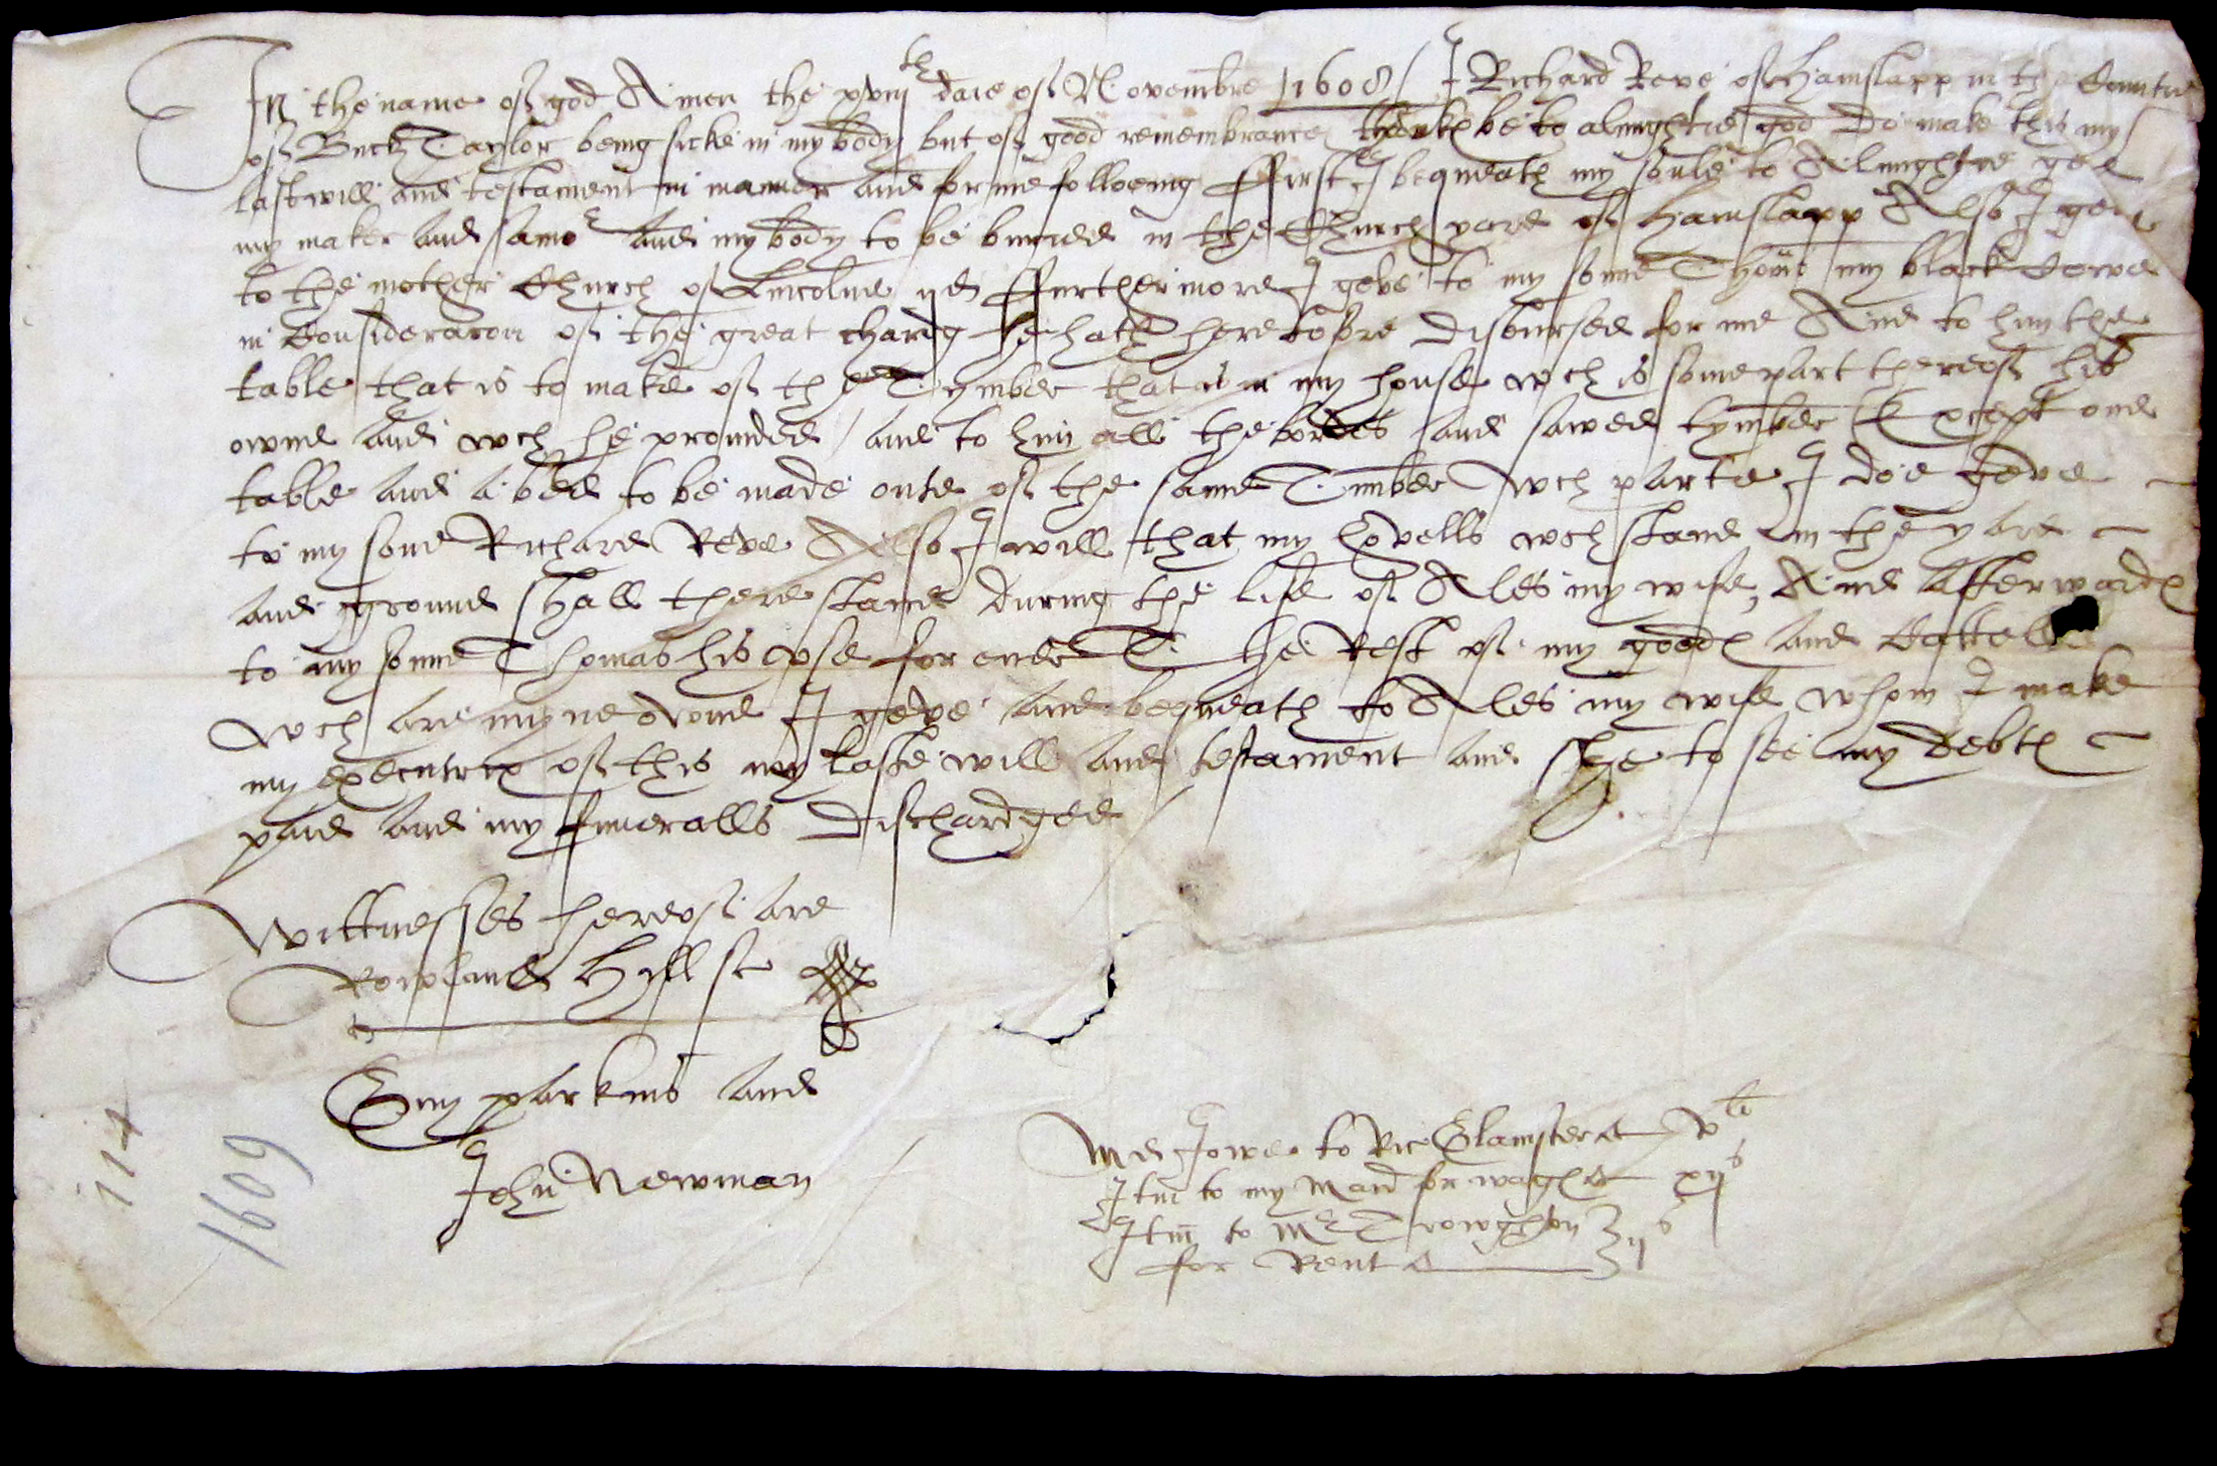 In the name of god Amen the xviijth daie of Novembre 1608 / I Richard Reve of Hamslapp in the Countie
of Buck Taylor being sicke in my body but of good remembrance thankes be to almightie god do make this my
last will and testament in maner and forme folloeing ffirst I bequeath my soule to Almightie god
my maker and savior and my body to be buried in the Church yard of Hamslapp Also I geve
to the mother Church of Lincolne ijd ffurthermore I geve to my sonne Thomas my black Cowe
in Consideracon of the great chardg he hath heretofore disbursed for me And to him the
table that is to make of the Tymber that is in my house wch is some part thereof his
owne and wch he provided / and to him all the bordes and sawed tymber Except one
table and a bed to be made oute of the same Timber Wch parte I doe geve
to my sone Richard Reve Also I will that my hovells wch stand in the yard
and ground shall there stand during the life of Ales my wife, And afterwardes
to my sonne Thomas his use for ever The Rest of my goodes and Cattells
Wch are myne owne I geve and bequeath to Ales my wife whom I make
my executrix of this my laste will and testament and she to see my debtes
paid and my funeralls dischardged
Wittnesses hereof are
Rowland Hyll sc
Guy parkins and
John Newman
Md I owe to Ric Glamster vli
Itm to my Maid for wages xijs
Itm to Mr Troughton } ijs
for Rent
114
1609